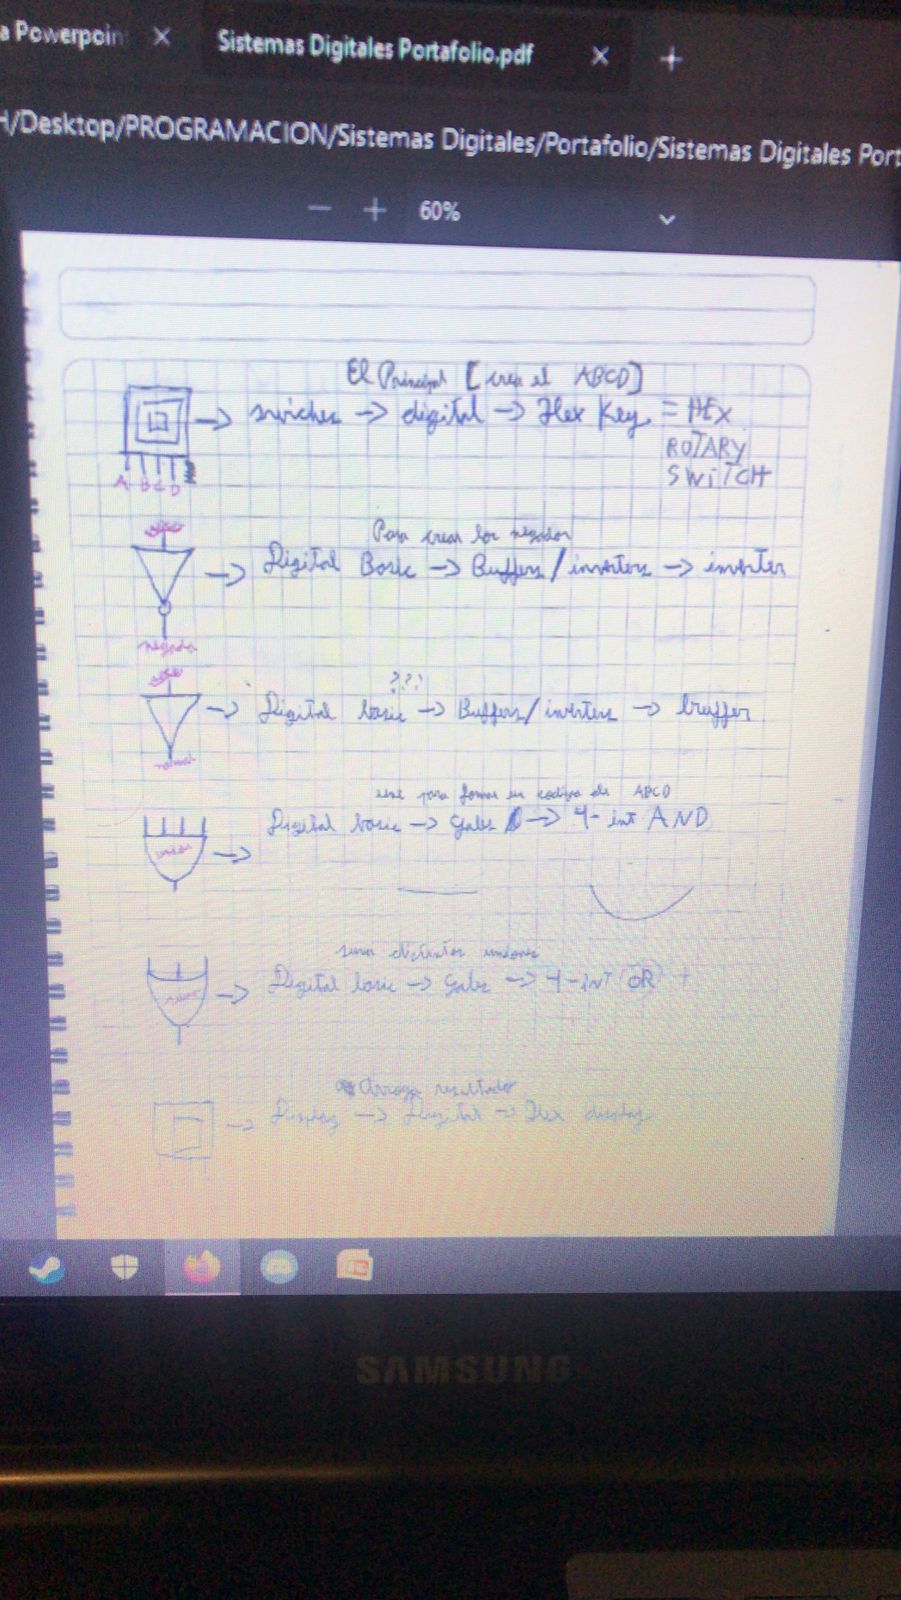 a Powerpoin
Sistemas Digitales Portafolio.pdf
H/Desktop/PROGRAMACION/Sistemas Digitales/Portafolio/Sistemas Digitales Port
60%
El Principal [crea el ABCD]
swiches → digital → Hex Key = HEX
ROTARY
SWiTCH
A B C D
Para crear los negador
Digital Basic → Buffers/inverters → inverter
negada
???
Digital basic → Buffers/inverters → buffer
normal
para formar un codigo de ABCD
Digital basic → gates → 4-int AND
Digital basic → gates → 4-iNT OR +
Arroja resultador
Display → Digital → Hex display
SAMSUNG